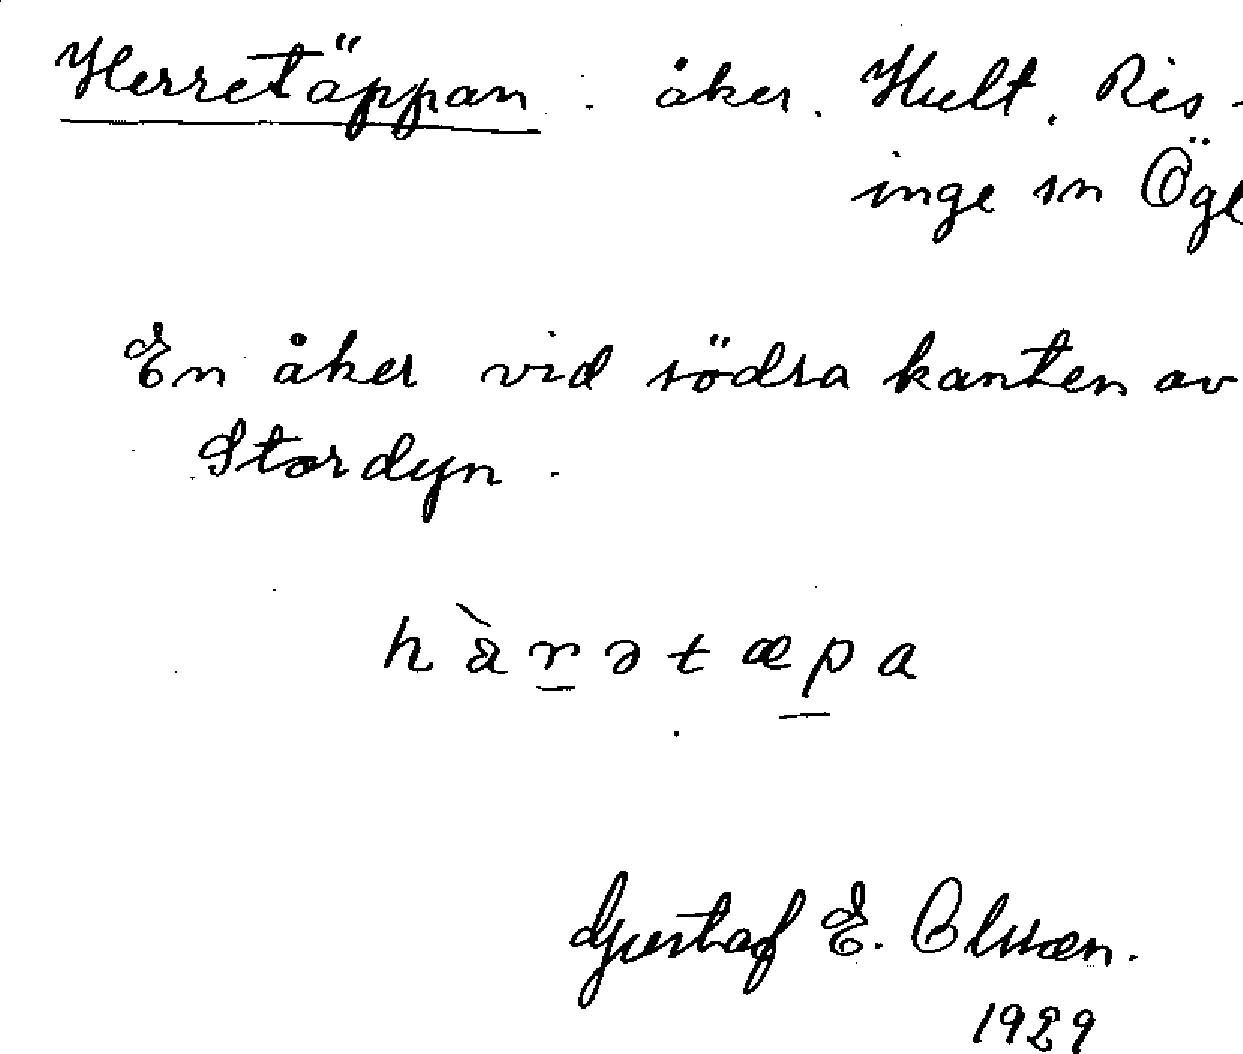 Herretäppan. åker. Hult. Ris-
inge sn Ögl
En åker vid södra kanten av
Stordyn.
hàrətæpa
Gustaf E. Olsson.
1929